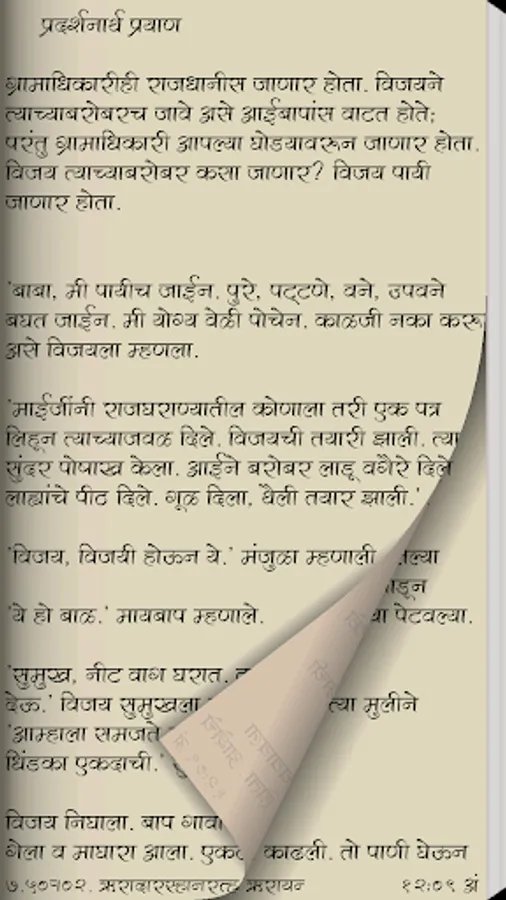 प्रदर्शनार्थ प्रयाण
ग्रामाधिकारीही राजधानीस जाणार होता. विजयने
त्याच्याबरोबरच जावे असे आईबापांस वाटत होते;
परंतु ग्रामाधिकारी आपल्या घोडयावरून जाणार होता.
विजय त्याच्याबरोबर कसा जाणार? विजय पायी
जाणार होता.
'बाबा, मी पायीच जाईन. पुरे, पट्टणे, वने, उपवने
बघत जाईन. मी योग्य वेळी पोचेन. काळजी नका करू
असे विजयला म्हणला.
'माईजींनी राजघराण्यातील कोणाला तरी एक पत्र
लिहून त्याच्याजवळ दिले. विजयची तयारी झाली. त्या
सुंदर पोषाख केला. आईने बरोबर लाडू वगैरे दिले
लाह्यांचे पीठ दिले. गूळ दिला, थैली तयार झाली.'
'विजय, विजयी होऊन ये.' मंजुळा म्हणाली ल्या
डून
'ये हो बाळ.' मायबाप म्हणाले. या पेटवल्या.
'सुमुख, नीट वाग घरात.
देऊ.' विजय सुमुखला त्या मुलीने
'आम्हाला समजते
धिंडका एकदाची.'
विजय निघाला. बाप गावा
गेला व माघारा आला. काढली. तो पाणी घेऊन
१२:०९